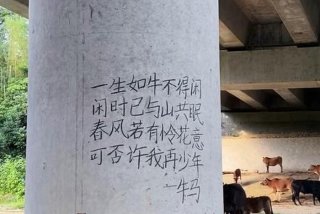 一生如牛不得闲
闲时已与山共眠
春风若有怜花意
可否许我再少年
牛马